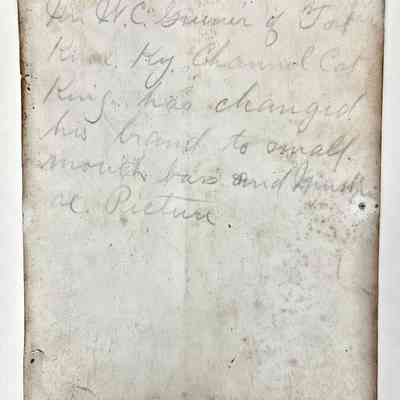 Dr. W.C. of Fort
Knox Ky. Channel Cat
King has changed
his brand to small
mouth bass and
al. Picture